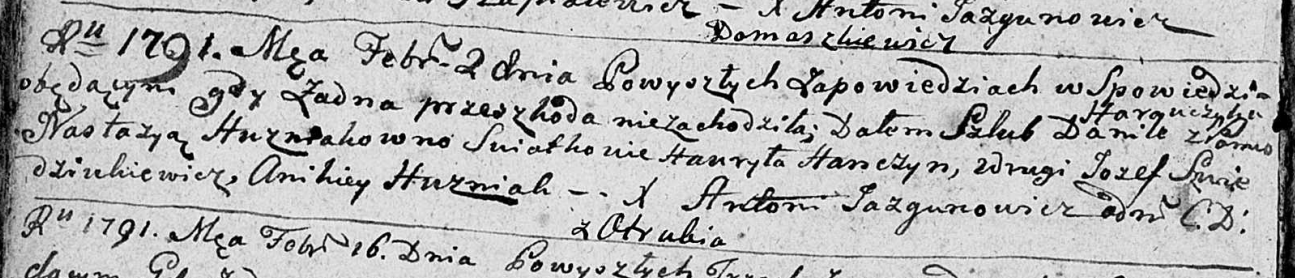 X Antoni Jazgunowicz
Domaszkiewicz
Ru 1791. Mca Febr. 2 dnia Powyszłych Zapowiedziach w Spowiedzi
będącym gdy Żadna przeszkoda niezachodziła; Dałem Szlub Danile
Nastazyą Huzniakowno Swiatkowie Hauryła Hanczyn, zdrugi Jozef Swie
dziukiewicz, Anikiey Huzniak - - X Antoni Jazgunowicz adm C. D:
z Otrubia
Ru 1791. Mca Febr 16. Dnia Powyszłych